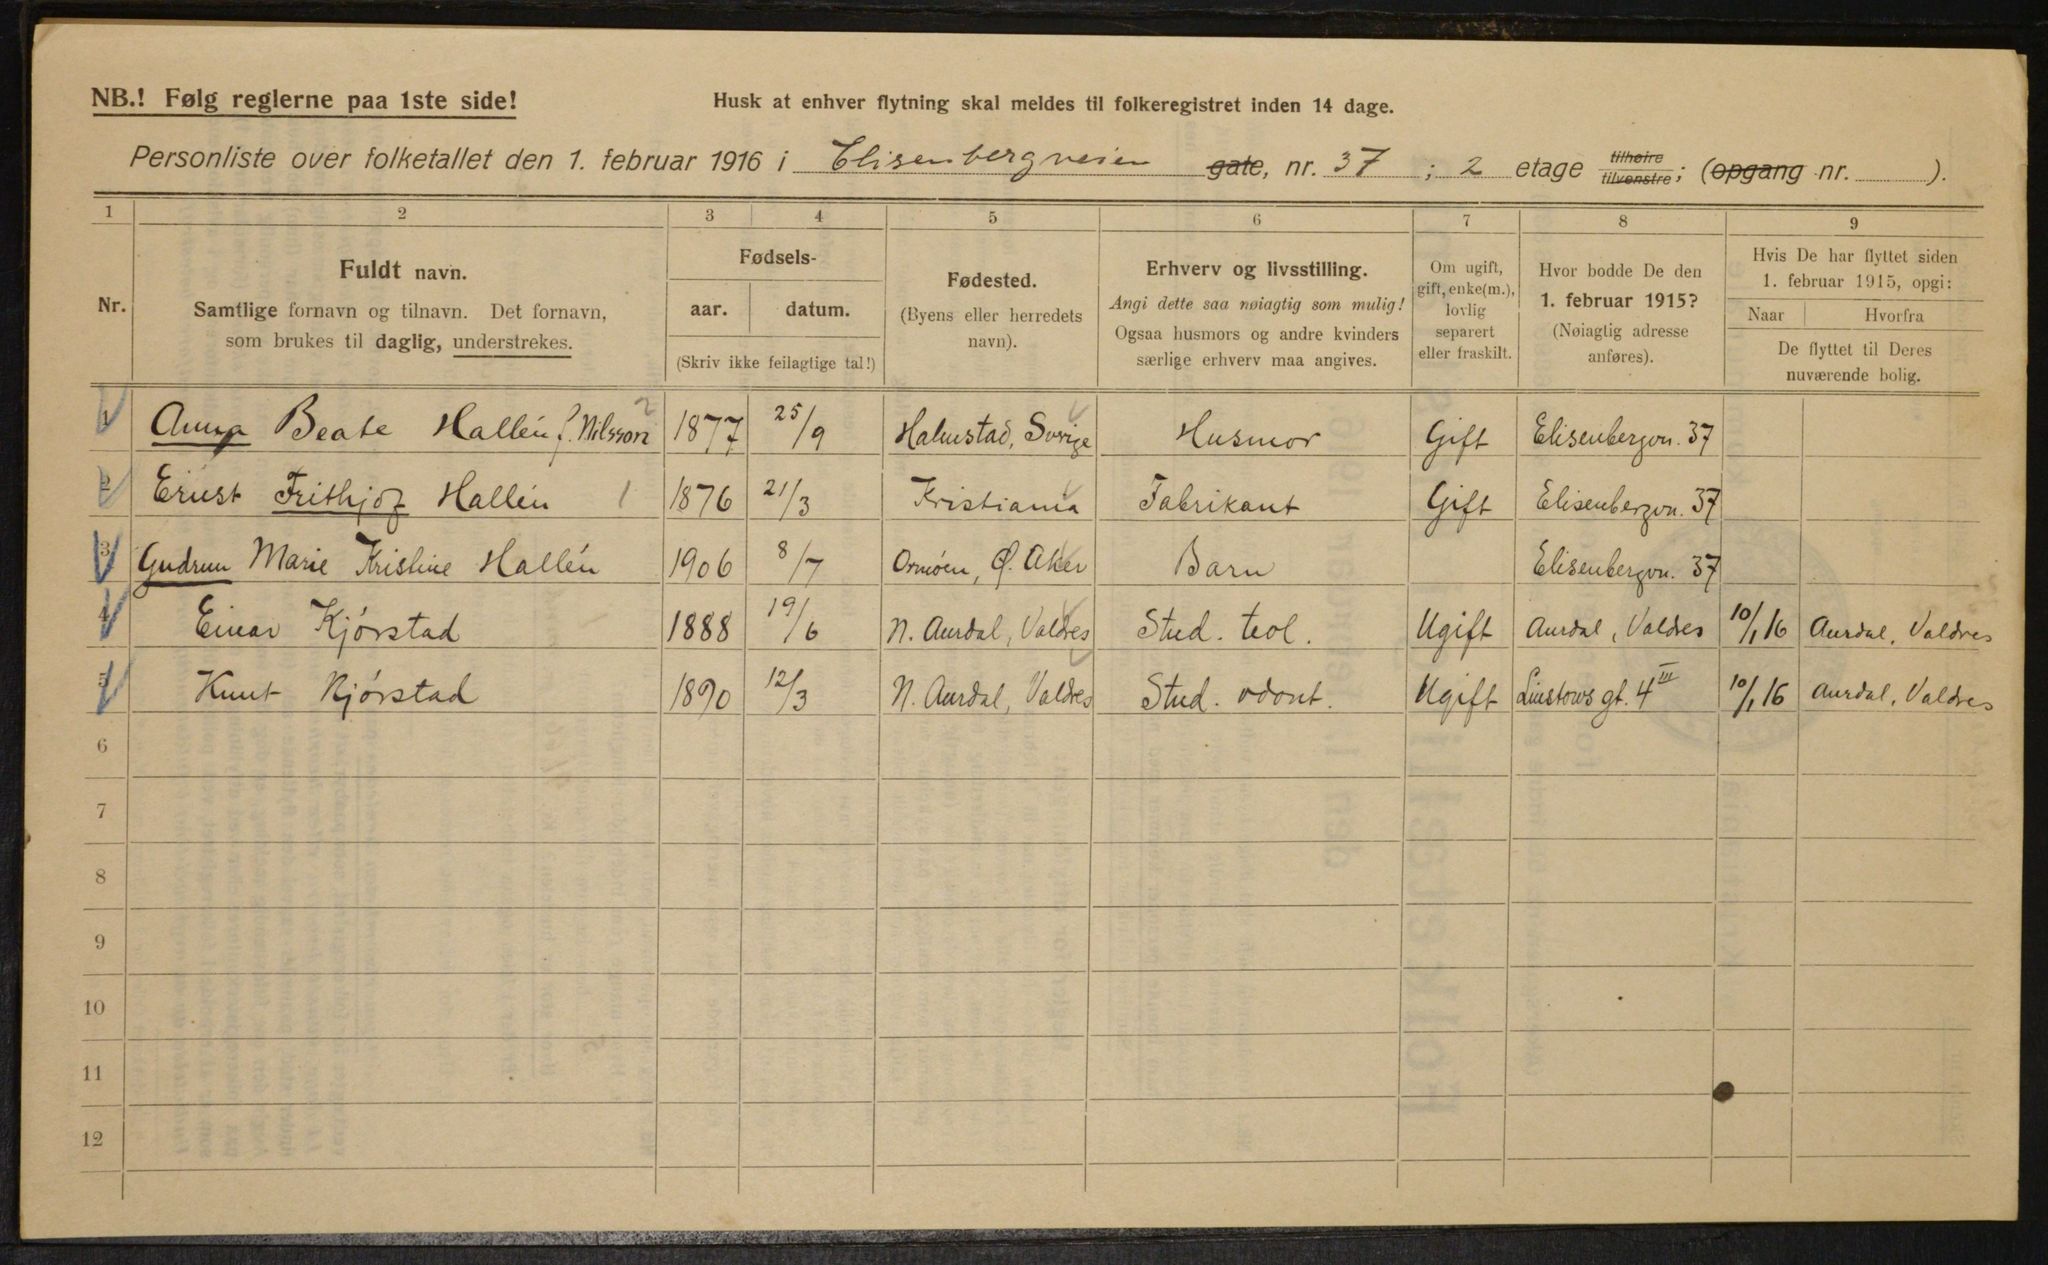 NB.! Følg reglerne paa 1ste side!
Husk at enhver flytning skal meldes til folkeregistret inden 14 dage.
Personliste over folketallet den 1. februar 1916 i Elisenbergveien gate, nr. 37 ; 2 etage tilhøire tilvenstre; (opgang nr. ).
1 2 3 4 5 6 7 8 9
Nr.
Fuldt navn.
Samtlige fornavn og tilnavn. Det fornavn,
som brukes til daglig, understrekes.
Fødsels-
aar. datum.
(Skriv ikke feilagtige tal!)
Fødested.
(Byens eller herredets
navn).
Erhverv og livsstilling.
Angi dette saa nøiagtig som mulig!
Ogsaa husmors og andre kvinders
særlige erhverv maa angives.
Om ugift,
gift, enke(m.),
lovlig
separert
eller fraskilt.
Hvor bodde De den
1. februar 1915?
(Nøiagtig adresse
anføres).
Hvis De har flyttet siden
1. februar 1915, opgi:
Naar Hvorfra
De flyttet til Deres
nuværende bolig.
1 Anna Beate Hallén f. Nilsson 2 1877 25/9 Halmstad, Sverige Husmor Gift Elisenbergvn. 37
2 Ernst Frithjof Hallén 1 1876 21/3 Kristiania Fabrikant Gift Elisenbergvn. 37
3 Gudrun Marie Kristine Hallén 1906 8/7 Ormöen, Ø. Aker Barn Elisenbergvn. 37
4 Einar Kjörstad 1888 19/6 N. Aurdal, Valdres Stud. teol. Ugift Aurdal, Valdres 10/1 16 Aurdal, Valdres
5 Knut Kjörstad 1890 12/3 N. Aurdal, Valdres Stud. odont. Ugift Linstows gt. 4 III 10/1 16 Aurdal, Valdres
6
7
8
9
10
11
12